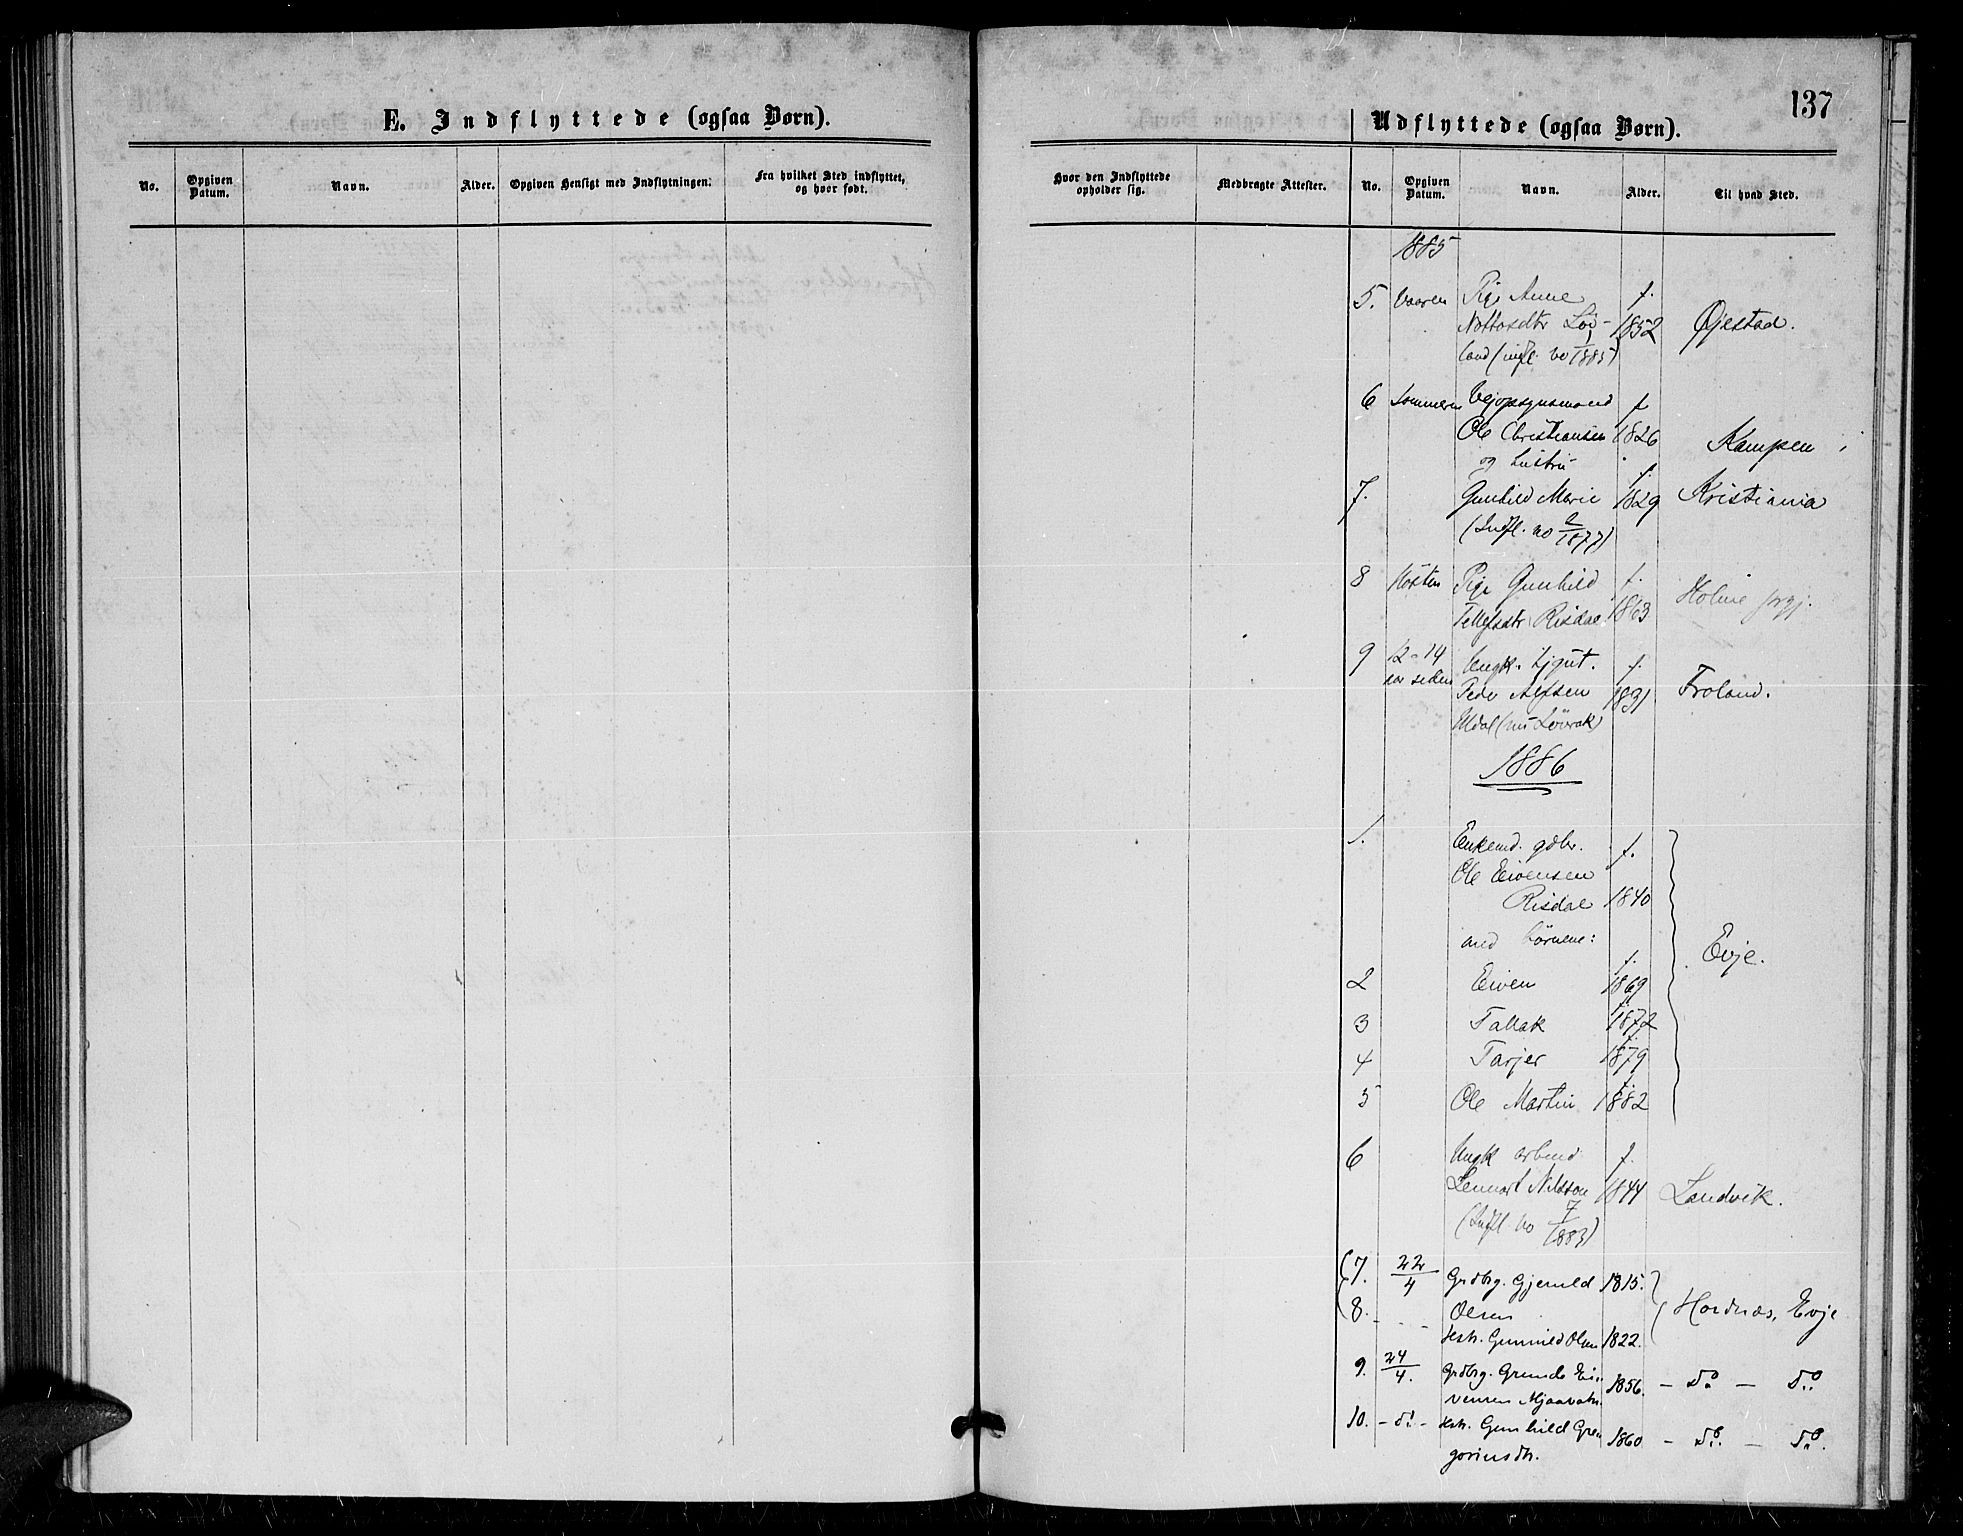 E. Indflyttede (ogsaa Børn).
No.
Opgiven Datum.
Navn.
Alder.
Opgiven Hensigt med Indflytningen.
Fra hvilket Sted indflyttet, og hvor født.
137
Udflyttede (ogsaa Børn).
Hvor den Indflyttede opholder sig.
Medbragte Attester.
No.
Opgiven Datum.
Navn.
Alder.
Til hvad Sted.
1885
5. Vaaren Pige Anne f.
1852 Øjestad.
land (infl. no 1/1885)
6 Sommeren Vejopsynsmand f
Ole Christiansen 1826 Kampen i
og hustru f.
7. Gunhild Marie 1829 Kristiania
(Indfl. no 2/1877)
8 Høsten Pige Gunhild f. Holme prgj.
Tellefsdtr Risdal 1863
9 12-14 Ungk. f.
aar siden Peder Alfsen 1831 Froland.
Udal (nu Løvrak)
1886
1. Enkemd. gdbr. f.
Ole Eivensen
Risdal 1840
med børnene: Evje.
f.
2 Eiven 1869
f.
3 Tallak 1872
f.
4 Tarjer 1879
f.
5 Ole Martin 1882
6 Ungk arbmd f.
Lennart Nilsson 1844 Landvik.
(Indfl. no 7/1883)
7. 22/4 Grdbrg. Gjeruld 1815.
8. - - - Olsen Hordnæs, Evje
Hstr. Gunnild Olsen 1822.
9. 24/4. Grdbrg. Grunde Ei-
vensen Mjaavatn. 1856. - do - do
10. - do - Hstr. Gunhild Gre
goriusdtr. 1860 - do - do.